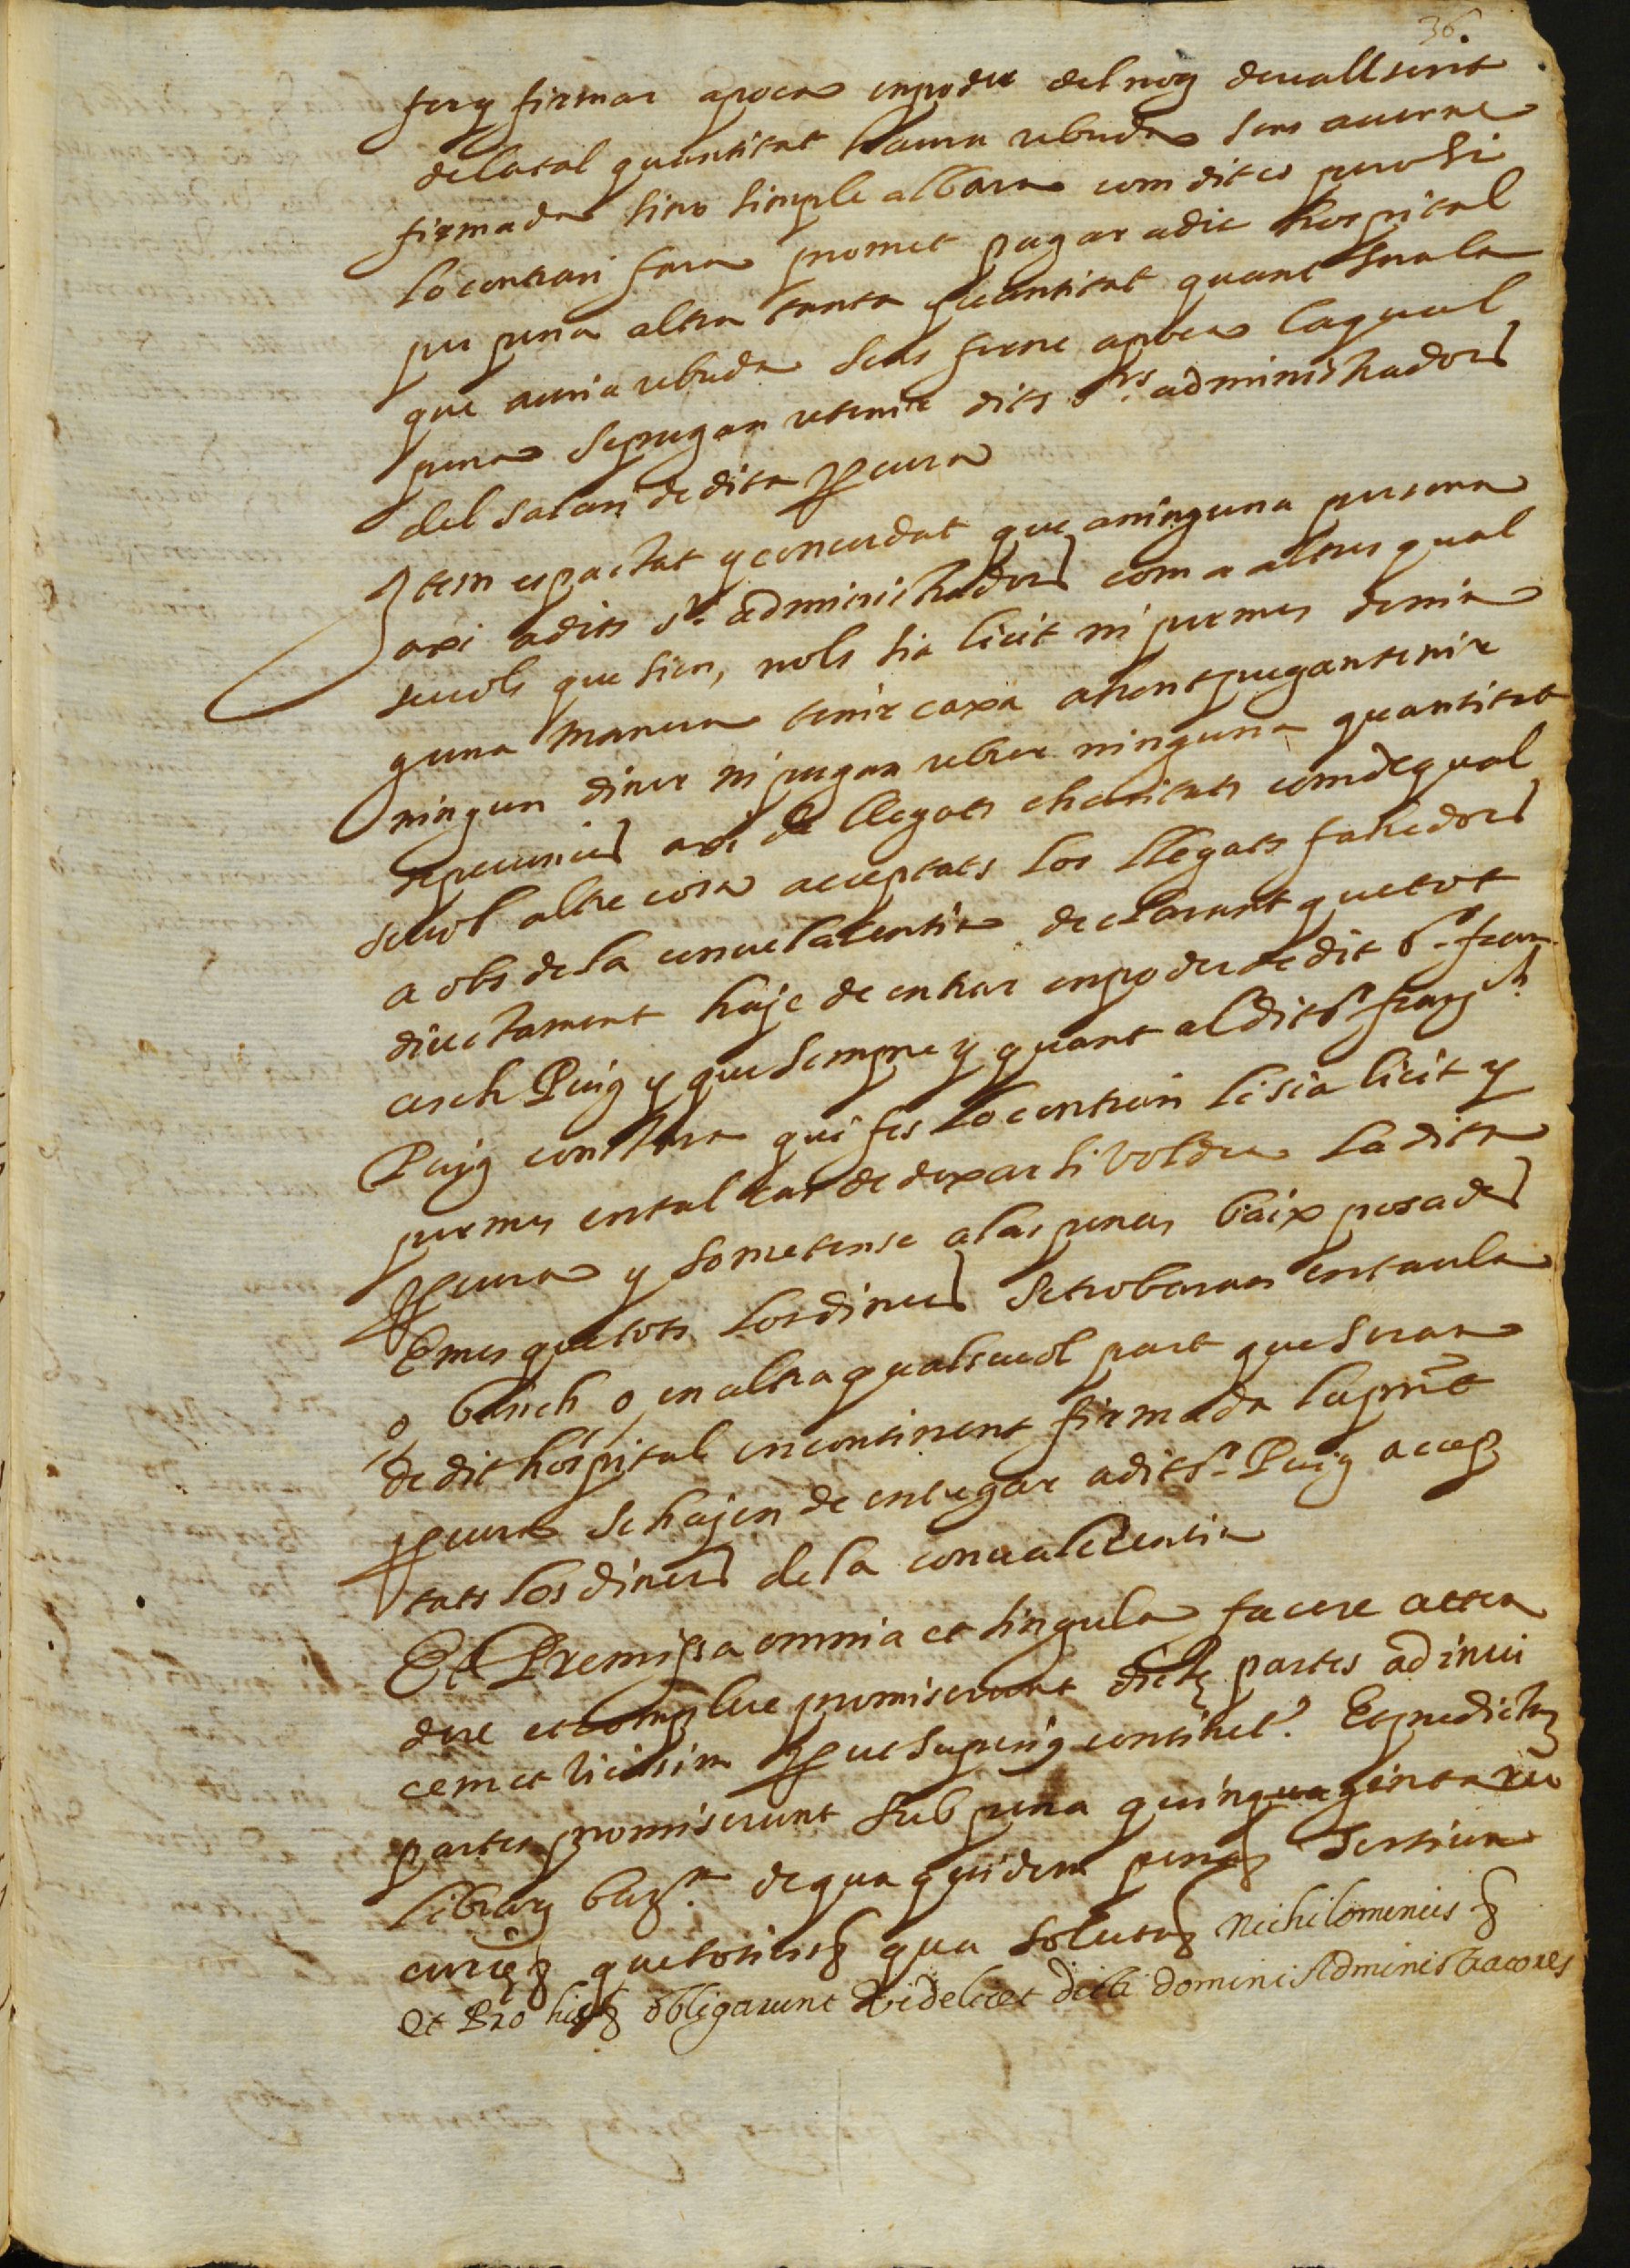 36.
fer y firmar apoca en poder del not devall scrit
de la tal quantitat haura rebuda sens averne
firmada sino simple albara com dit es pero si
lo contrari fara promet pagar a dit hospital
per pena altra tanta quantitat quant sera la
que auria rebuda sens ferne apoca la qual
pena se pugan retenir dits Srs administradors
del salari de dita procura
Item es pactat y concordat que a ninguna persona
axi a dits Srs administradors com a altres qual
sevols que sien, nols sia licit ni permes de nin
guna manera tenir caxa ahont pugan tenir
ningun diner ni pugan rebrer ninguna quantitat
de pecunies axi de llegats charitats com de qual
sevol altre cosa acceptats los llegats fahedors
a obs de la convelalentia declarant que tot
directament haje de entrar en poder de dit Sr fran
cesch Puig y que sempre y quant al dit Sr franch
Puig constara qui fes lo contrari li sia licit y
permes en tal cas de dexar si voldra la dita
procura y sometense a las penas baix posades
E mes que tots los diners se trobaran en taula
o banch o en altra qualsevol part que seran
de dit hospital encontinent firmada la pnt
procura se hajen de entregar a dit Sr Puig accep
tats los diners de la convalelentia
Et Premissa omnia et singula facere atten
dere et complere promiserunt dicte partes ad invi
cem et vicissim prout superius continet. Et predicte
partes promiserunt sub pena quinquaginta
librarum de qua quidem pena tertium
curie quetotiens qua soluta Nichilominus
Et Pro his obligarunt Videlicet dicti domini Administratores